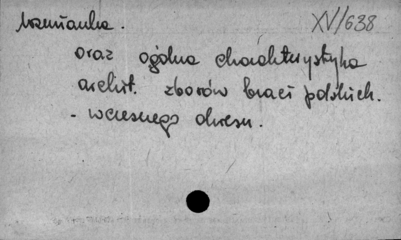 XV/638
oraz ogólna charakterystyka
archit. zborów braci polskich.
- wczesnego okresu.